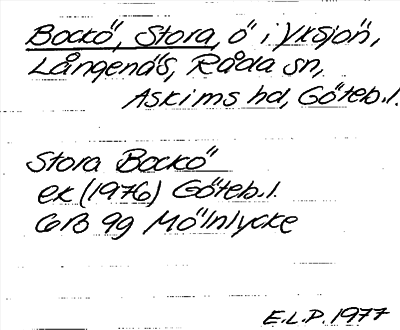 Bockö, Stora, ö i Yxsjön,
Långenäs, Råda sn,
Askims hd, Göteb.l.
Stora Bockö
ek (1976) Göteb.l.
6B 9g Mölnlycke
E.L.P. 1977